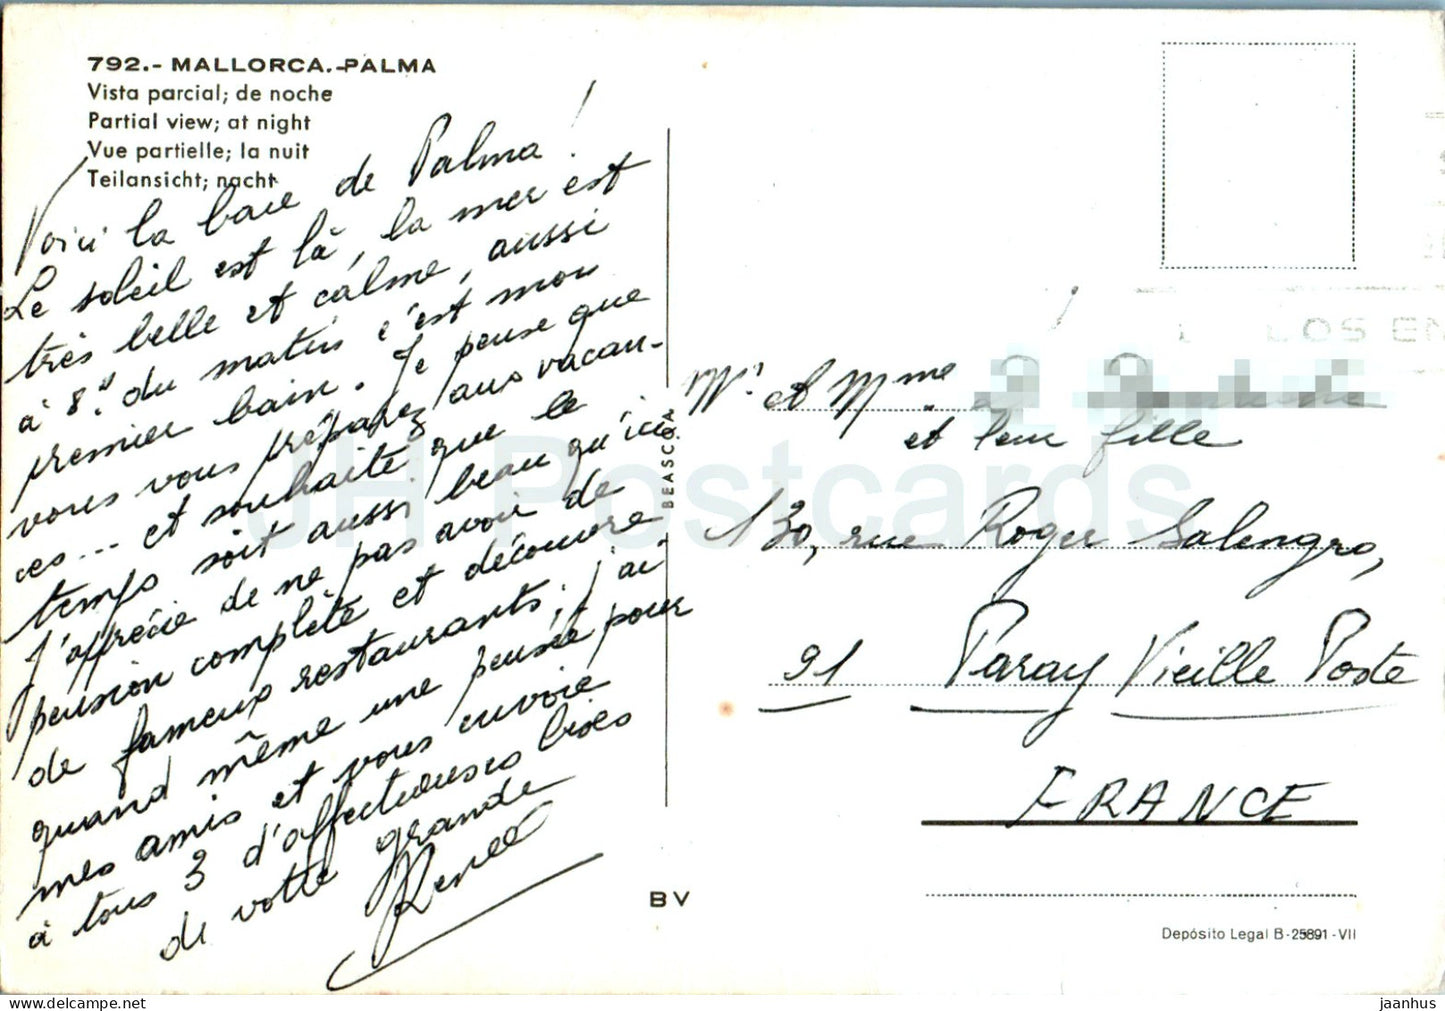 792.- MALLORCA.-PALMA
Vista parcial; de noche
Partial view; at night
Vue partielle; la nuit
Teilansicht; nacht
Voici la baie de Palma !
Le soleil est là, la mer est
très belle et calme, aussi
à 8h. du matin c'est mon
premier bain. Je pense que
vous vous préparez aux vacan-
ces... et souhaite que le
temps soit aussi beau qu'ici
J'apprécie de ne pas avoir de
pension complète et découvre
de fameux restaurants; j'ai
quand même une pensée pour
mes amis et vous envoie
à tous 3 d'affectueuses bises
de votre grande
Renée
BEASCOA
BV
LOS EN
Mr. et Mme.
et leur fille
130, rue Roger Salengro,
91 Paray Vieille Poste
FRANCE
Depósito Legal B-25891-VII
JH Postcards
jaanhus